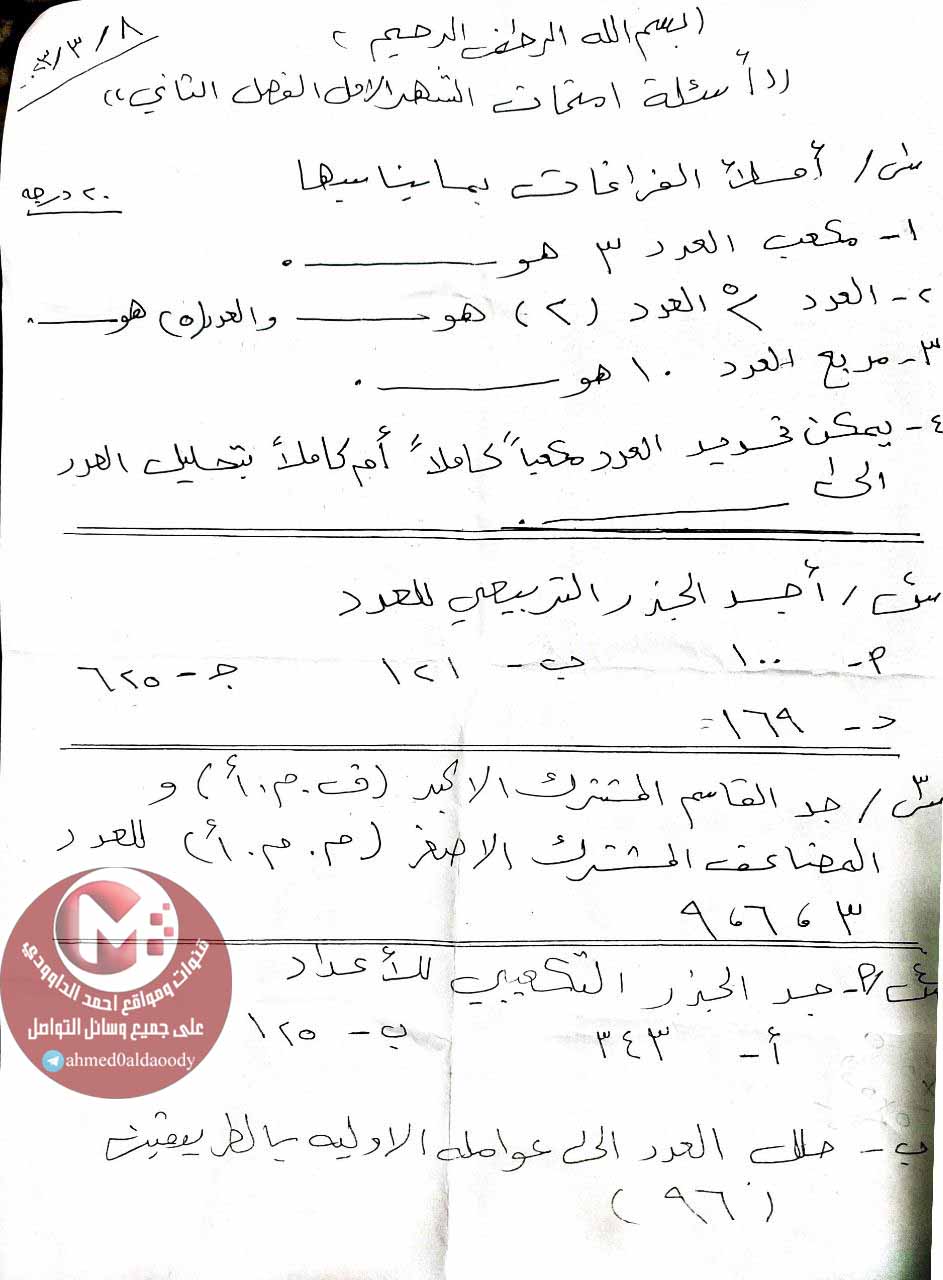 (بسم الله الرحمن الرحيم)
٨ / ٣ /
((أسئلة امتحان الشهر الاول الفصل الثاني))
س١/ أملأ الفراغات بما يناسبها
٢٠ درجه
١- مكعب العدد ٣ هو ـــــــ .
٢- العدد ٢٥ العدد (٢) هو ـــــــ والعدد (٥) هو ـــــــ .
٣- مربع العدد ١٠ هو ـــــــ .
٤- يمكن تحديد العدد مكعباً كاملاً أم كاملاً بتحليل العدد
الى ـــــــ .
س٢/ أجد الجذر التربيعي للعدد
أ- ١٠٠ ب- ١٢١ جـ- ٦٢٥
د- ١٦٩=
س٣/ جد القاسم المشترك الاكبر (ق.م.أ) و
المضاعف المشترك الاصغر (م.م.أ) للعدد
٣ ، ٦ ، ٩
س٤/ أ- جد الجذر التكعيبي للأعداد
أ- ٣٤٣ ب- ١٢٥
ب- حلل العدد الى عوامله الاوليه بالطريقتين
(٩٦)
قنوات ومواقع احمد الداوودي
على جميع وسائل التواصل
ahmed0aldaoody